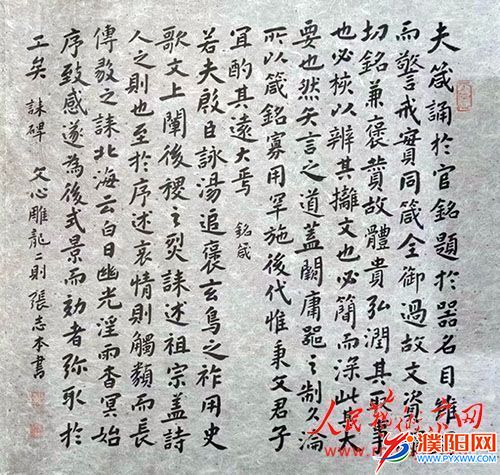 夫箴誦於官銘題於器名目雖
而警戒實同箴全御過故文資
切銘兼褒讚故體貴弘潤其取事
也必核以辨其攡文也必簡而深此其大
要也然矢言之道蓋闕庸器之制久淪
所以箴銘寡用罕施後代惟秉文君子
宜酌其遠大焉 銘箴
若夫殷臣詠湯追褒玄鳥之祚周史
歌文上闡後稷之烈誄述祖宗蓋詩
人之則也至於序述哀情則觸類而長
傅毅之誄北海云白日幽光淫雨杳冥始
序致感遂為後式景而効者弥取於
工矣 誄碑 文心雕龍二則 張志本書
濮阳网